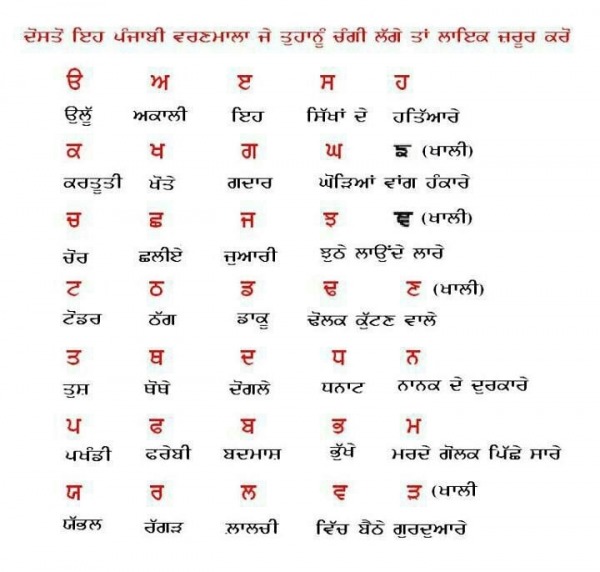 ਦੋਸਤੋਂ ਇਹ ਪੰਜਾਬੀ ਵਰਣਮਾਲਾ ਜੇ ਤੁਹਾਨੂੰ ਚੰਗੀ ਲੱਗੇ ਤਾਂ ਲਾਇਕ ਜ਼ਰੂਰ ਕਰੋਂ
ੳ ਅ ੲ ਸ ਹ
ਉਲੂੱ ਅਕਾਲੀ ਇਹ ਸਿੱਖਾਂ ਦੇ ਹਤਿੱਆਰੇ
ਕ ਖ ਗ ਘ ਙ (ਖਾਲੀ)
ਕਰਤੂਤੀ ਖੋਤੇ ਗਦਾਰ ਘੋੜਿਆਂ ਵਾਂਗ ਹੰਕਾਰੇ
ਚ ਛ ਜ ਝ ਞ (ਖਾਲੀ)
ਚੋਰ ਛਲੀਏ ਜੁਆਰੀ ਝੁਠੇ ਲਾਉਂਦੇ ਲਾਰੇ
ਟ ਠ ਡ ਢ ਣ (ਖਾਲੀ)
ਟੋਡਰ ਠੱਗ ਡਾਕੂ ਢੋਲਕ ਕੁੱਟਣ ਵਾਲੇ
ਤ ਥ ਦ ਧ ਨ
ਤੁਸ਼ ਥੋਥੇ ਦੋਗਲੇ ਧਨਾਟ ਨਾਨਕ ਦੇ ਦੁਰਕਾਰੇ
ਪ ਫ ਬ ਭ ਮ
ਪਖੰਡੀ ਫਰੇਬੀ ਬਦਮਾਸ਼ ਭੁੱਖੇ ਮਰਦੇ ਗੋਲਕ ਪਿੱਛੇ ਸਾਰੇ
ਯ ਰ ਲ ਵ ੜ (ਖਾਲੀ
ਯੱਭਲ ਰੱਗੜ ਲਾਲਚੀ ਵਿੱਚ ਬੈਠੇ ਗੁਰਦੁਆਰੇ